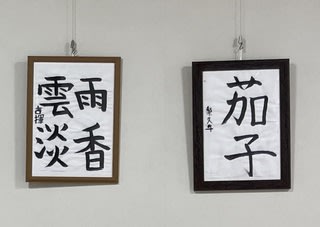 雨香
雲淡
茄子